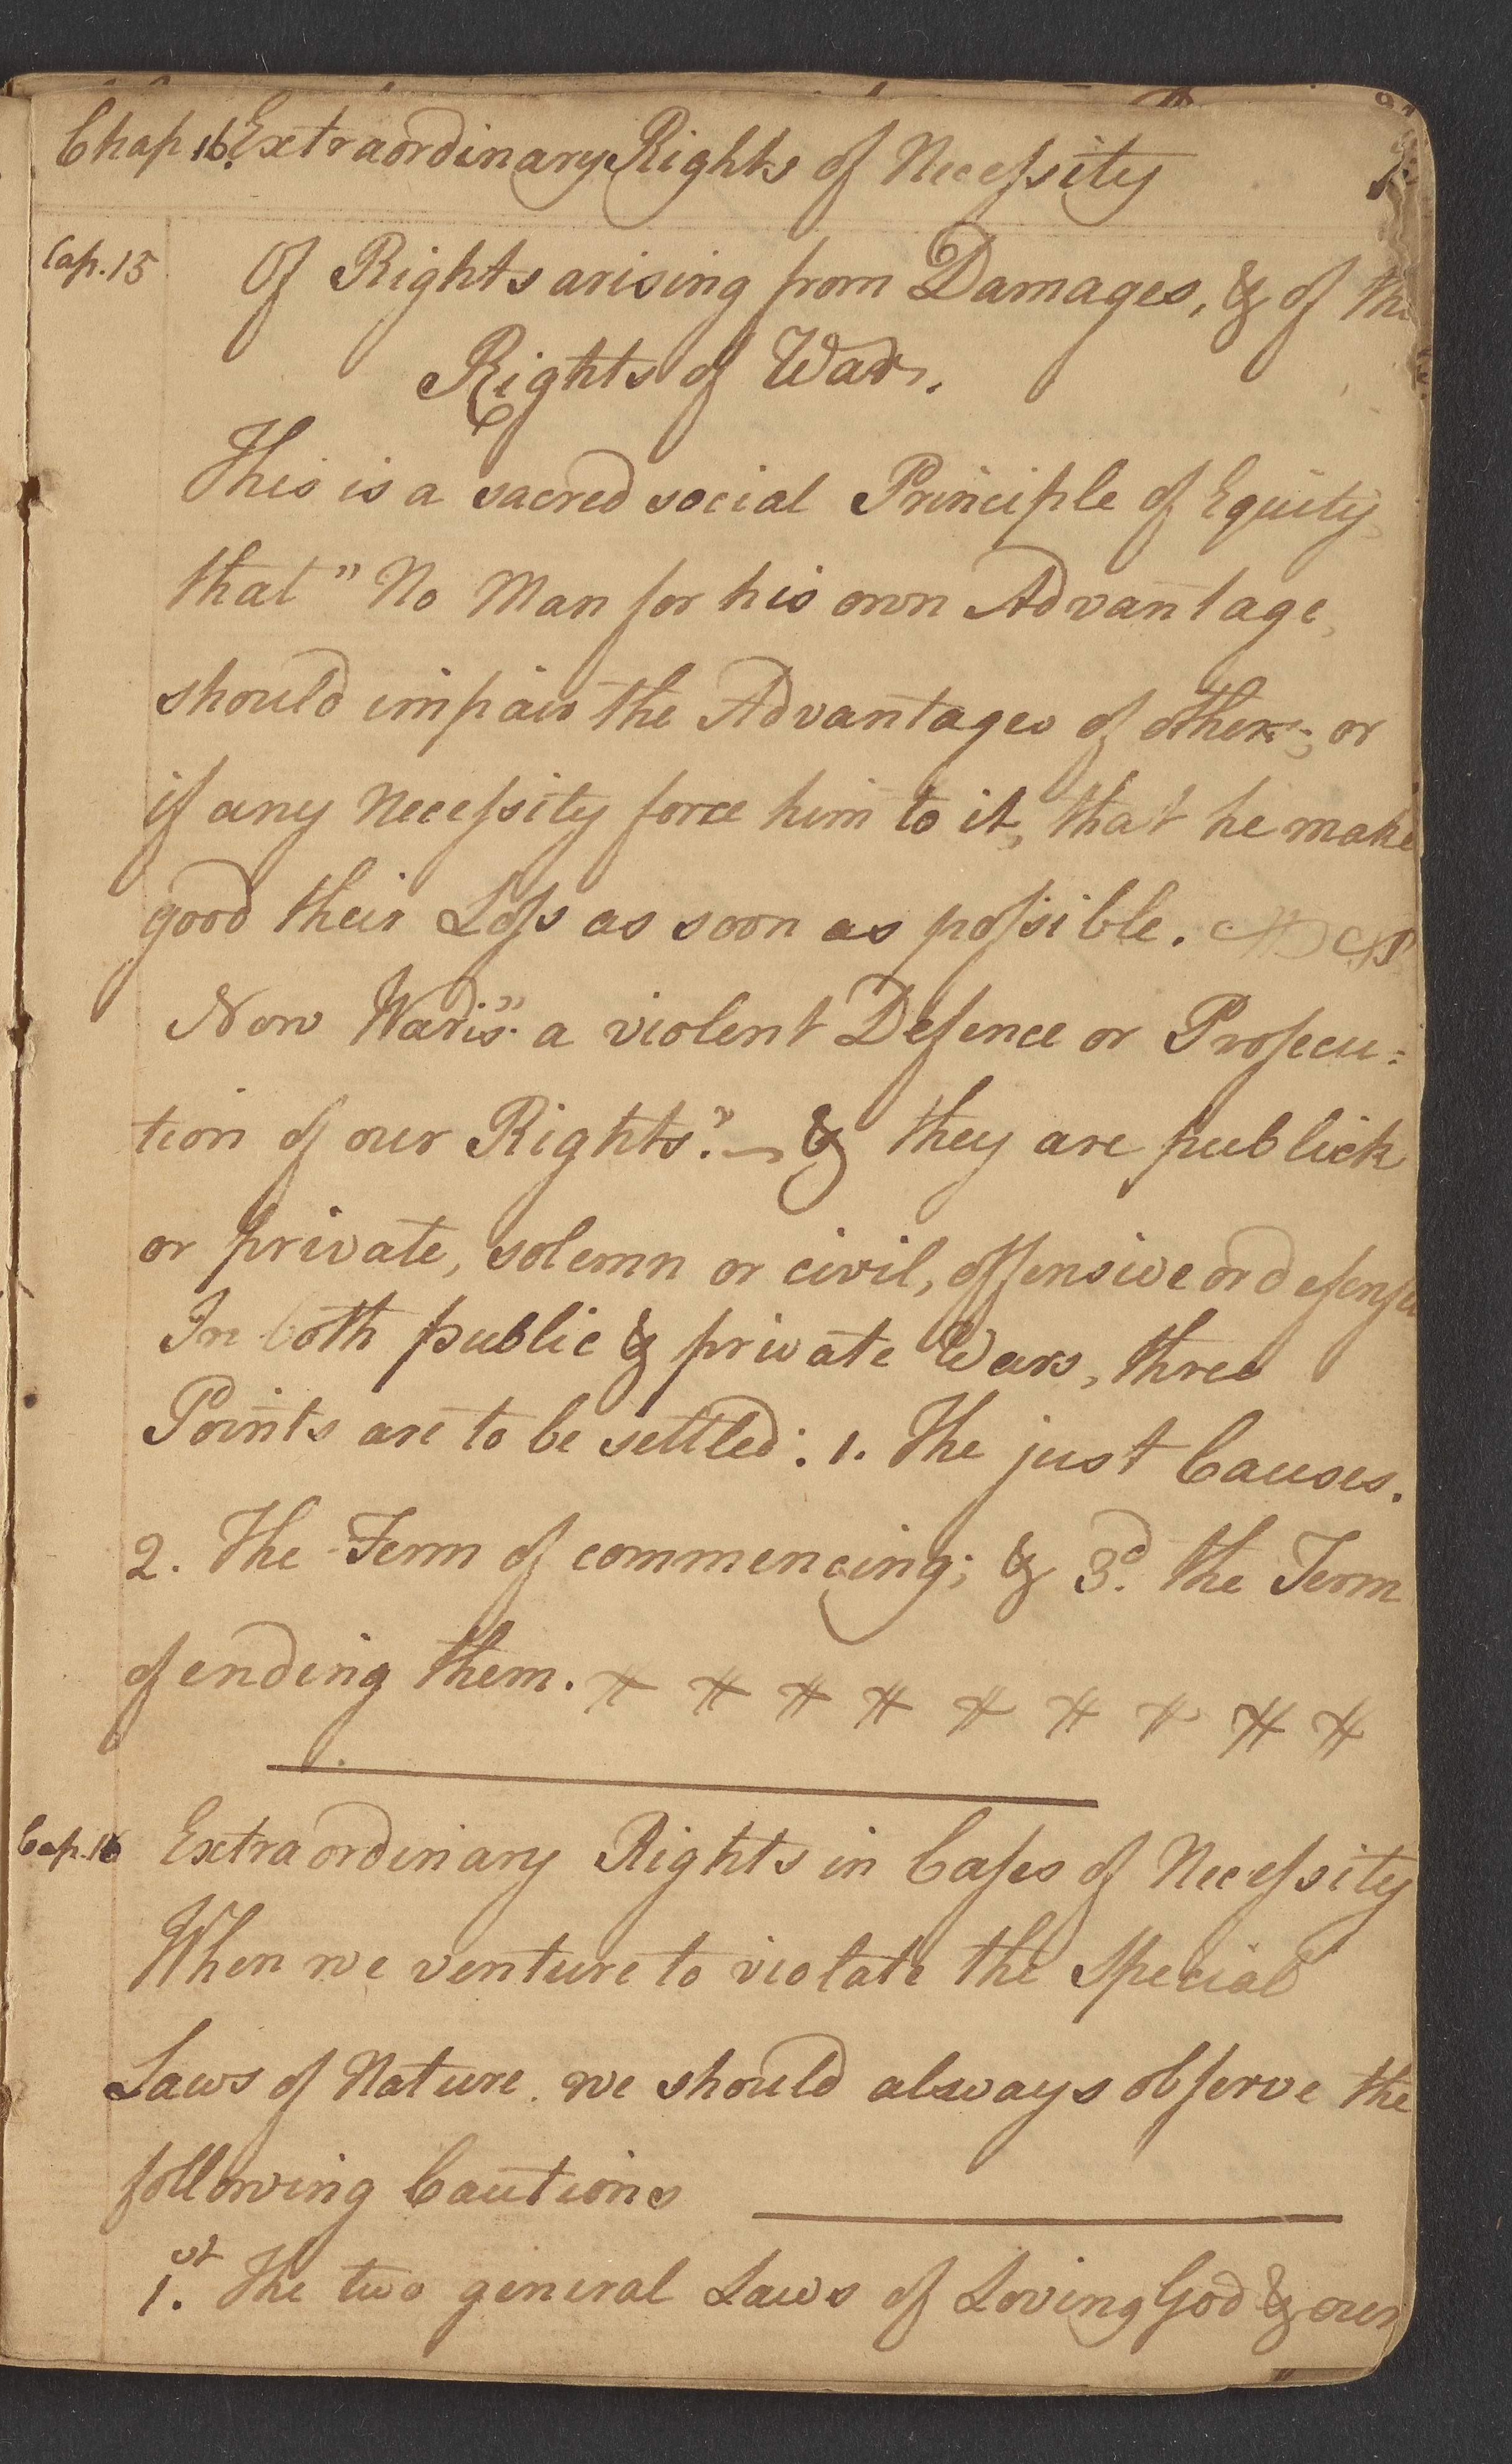 Chap 16. Extraordinary Rights of Necessity
Cap. 15 Of Rights arising from Damages, & of the
Rights of War.
This is a sacred social Principle of Equity,
that " No Man for his own Advantage,
should impair the Advantages of others; or
if any Necessity force him to it, that he make
good their Loss as soon as possible.
Now War is " a violent Defence or Prosecu=
tion of our Rights." — & they are publick
or private, solemn or civil, offensive or defensi
In both public & private Wars, three
Points are to be settled: 1. The just Causes.
2. The Term of commencing; & 3d. the Term
of ending them.
Cap. 16 Extraordinary Rights in Cases of Necessity
When we venture to violate the Special
Laws of Nature. we should always observe the
following Cautions
1.st The two general Laws of Loving God & our